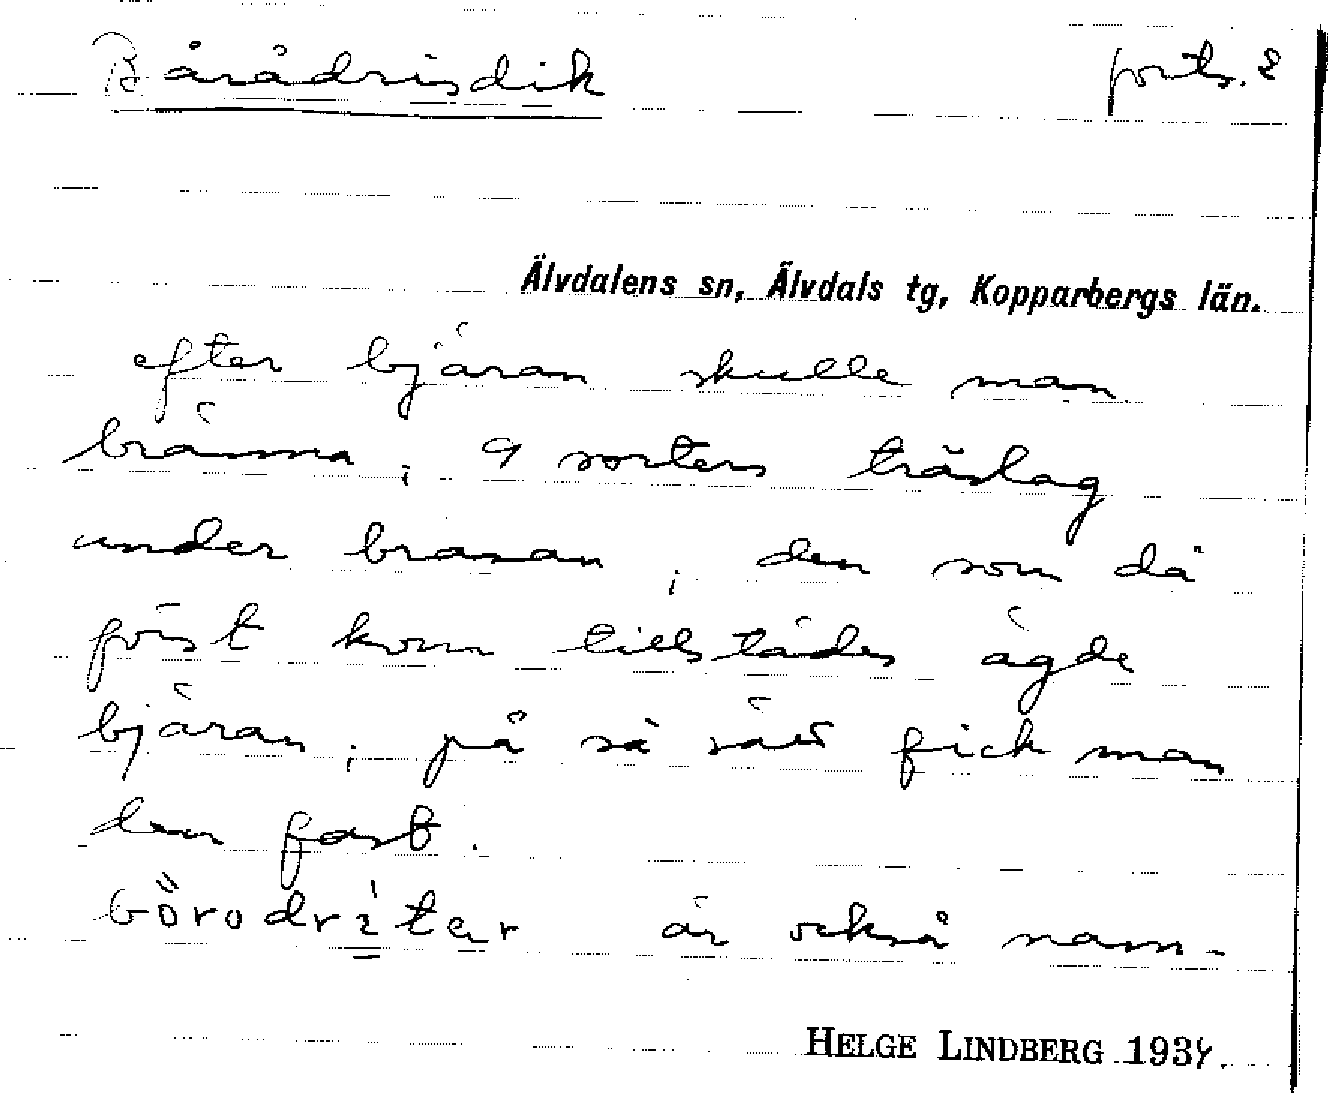 Bårådrisdik forts. 2
Älvdalens sn, Älvdals tg, Kopparbergs län.
efter bjäran skulle man
bränna, 9 sorters träslag
under brasan, den som då
först kom tillstädes ägde
bjäran, på så sätt fick man
den fast.
börodritar är också namn-
HELGE LINDBERG 1934.